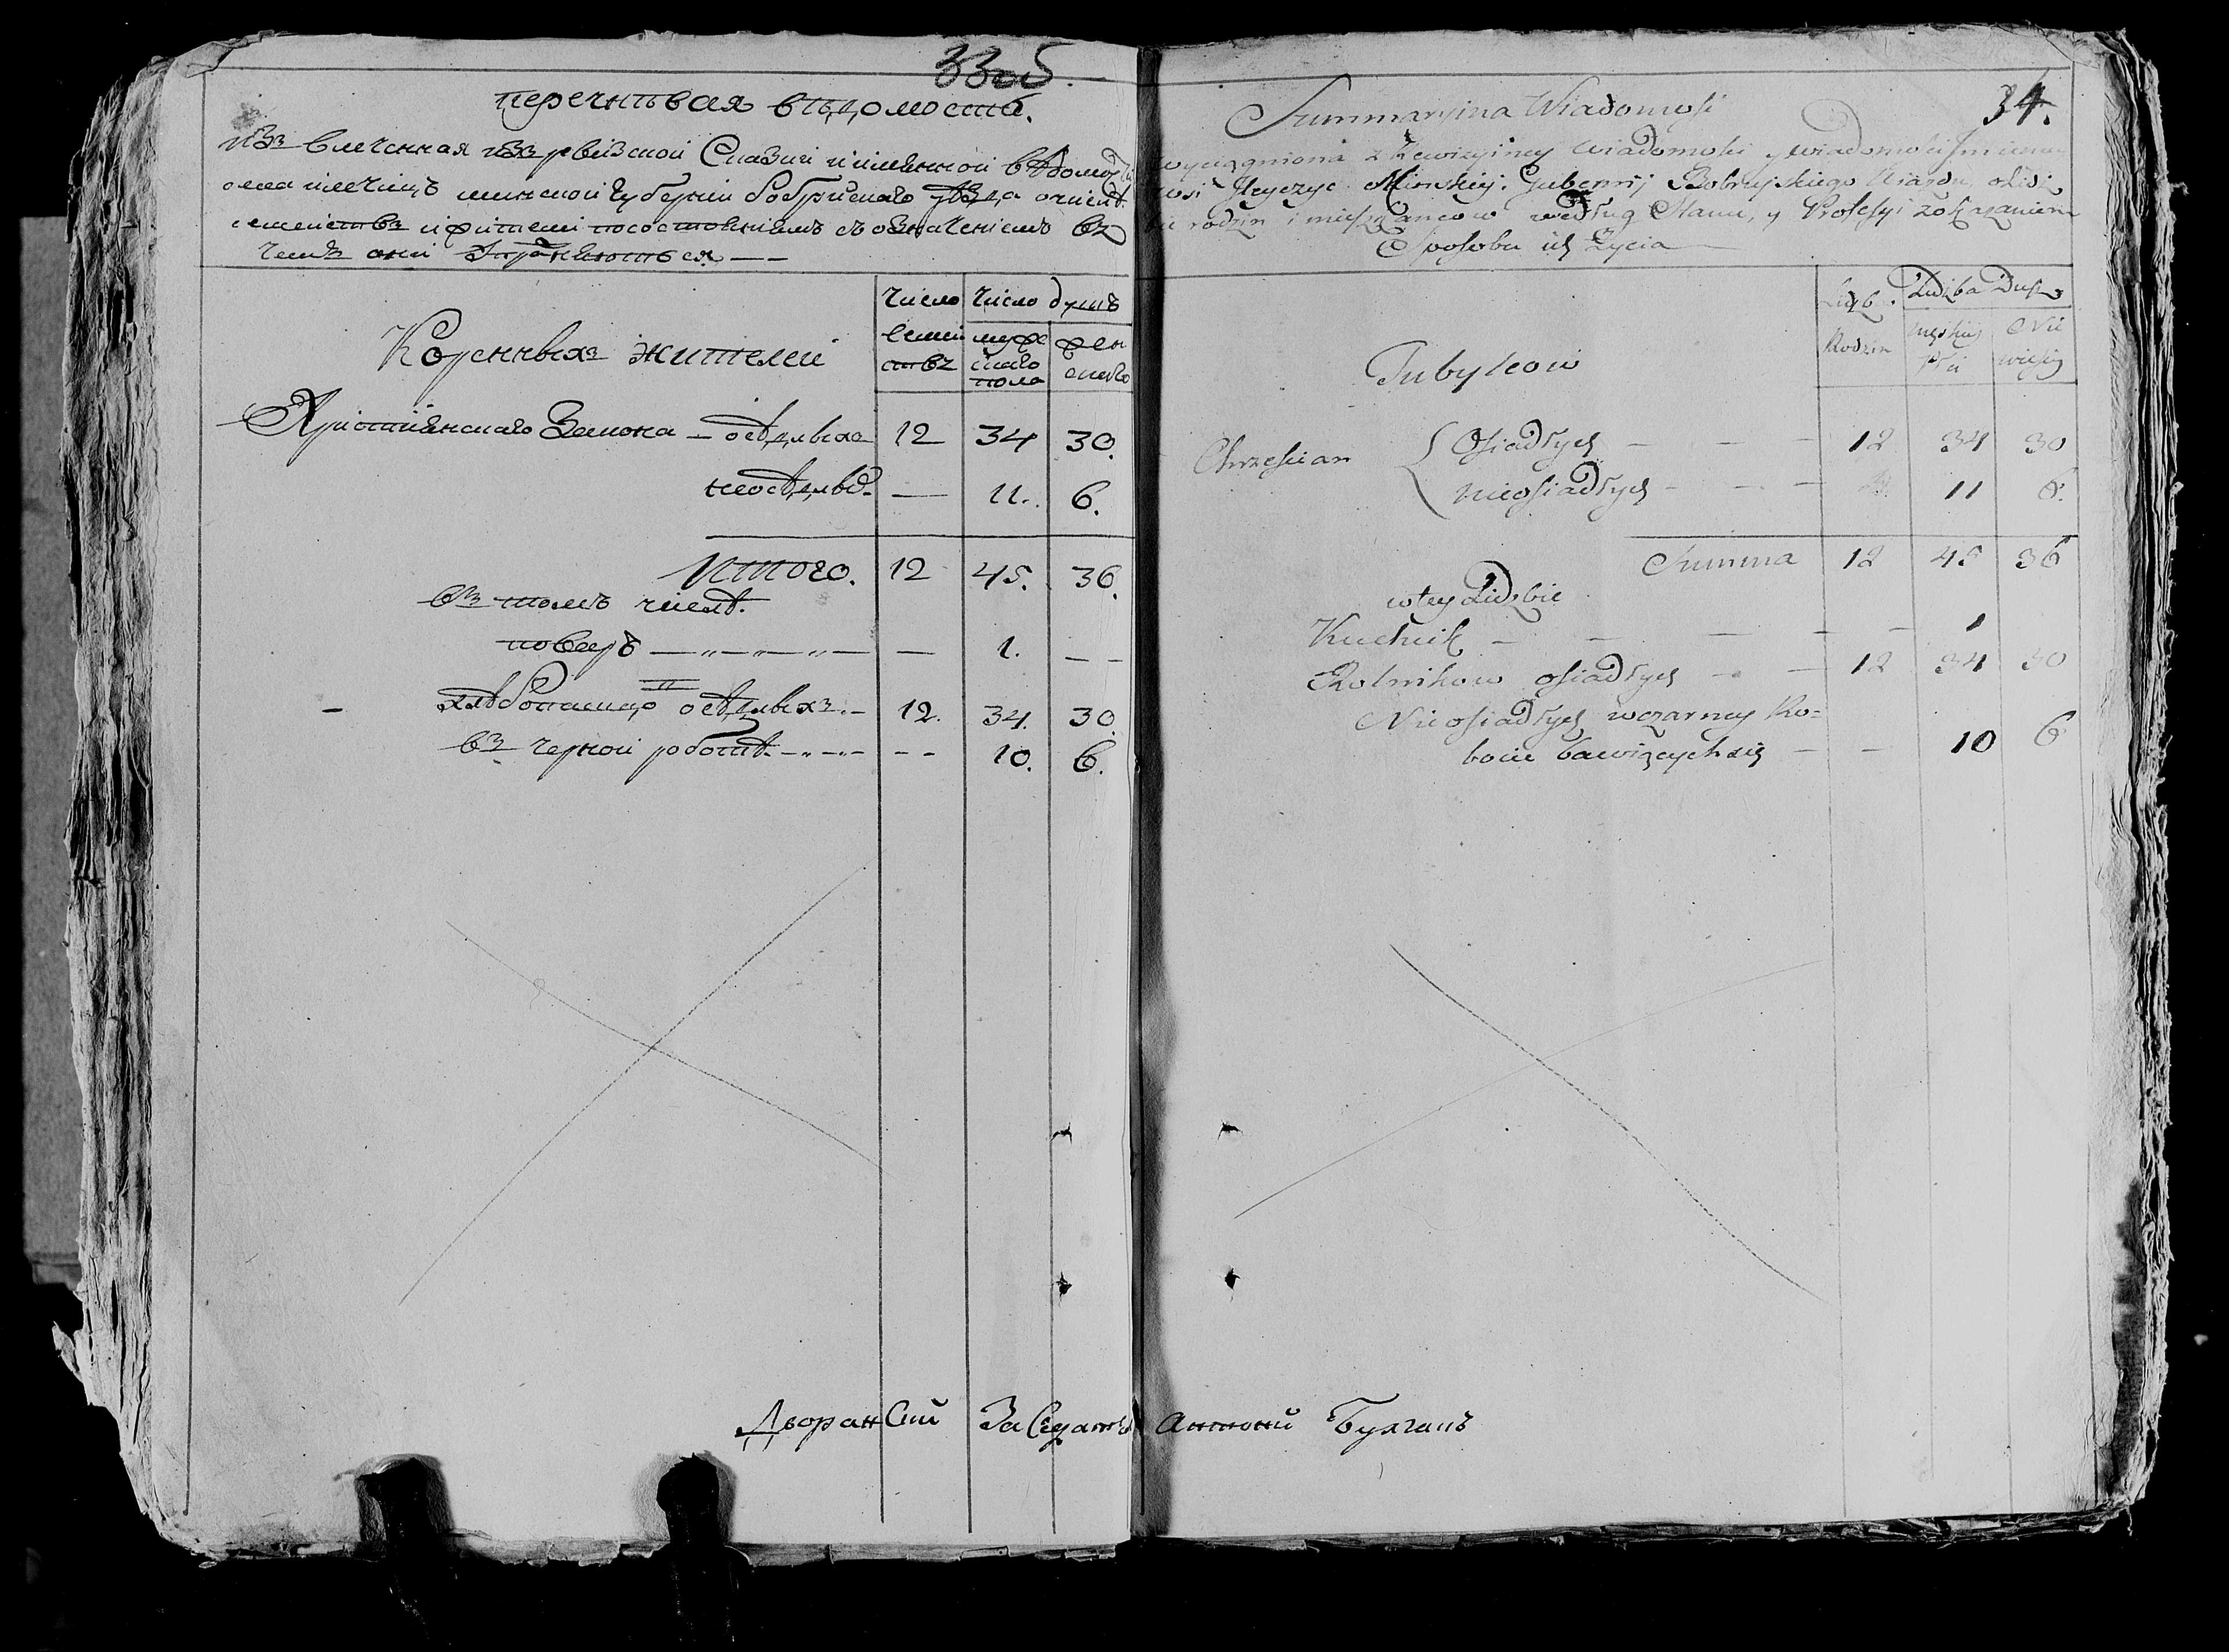 33об.
перечневая вѣдомость.
изъ влеченная изъ ревизской Сказки и имянной вѣдомо
села минской губернии бобруйскаго уѣзда о числѣ
семействъ и жителей по состояниямъ съ означениемъ въ
чемъ они Упражняются —
Коренныхъ жителей
число семействъ
число душъ
мужескаго пола
женскаго
Християнскаго Закона — осѣдлыхъ 12 34 30.
неосѣдлы. — 11. 6.
Итого. 12 45. 36.
въ томъ числѣ.
поваръ — — 1. — —
хлѣбопашцо осѣдлыхъ. — 12. 34. 30.
въ черной роботѣ. — — 10. 6.
Дворанский Заседатель
34.
Summaryina Wiadomosć
wyciągniona z Rewizyiney Wiadomości y wiadomości
wsi Minskiey Gubernij Bobruyskiego Uiazdu, o Liczbie
rodzin i mieszkancow według Stanu, y Professyi z okazaniem
Sposobu ich Życia
Tubylcow
Liczba Rodzin
Liczba Dusz
męskiey Płci
Niewieśc
Chrzescian { Osiadłych — — — 12 34 30
nieosiadłych — — — 11 6.
Summa 12 45 36
w tey Liczbie
Kuchni — — — — — 1
Rolnikow osiadłych — — 12 34 30
Nieosiadłych w czarney Ro=
bocie bawiących się — — 10 6
Антоний Булгакъ